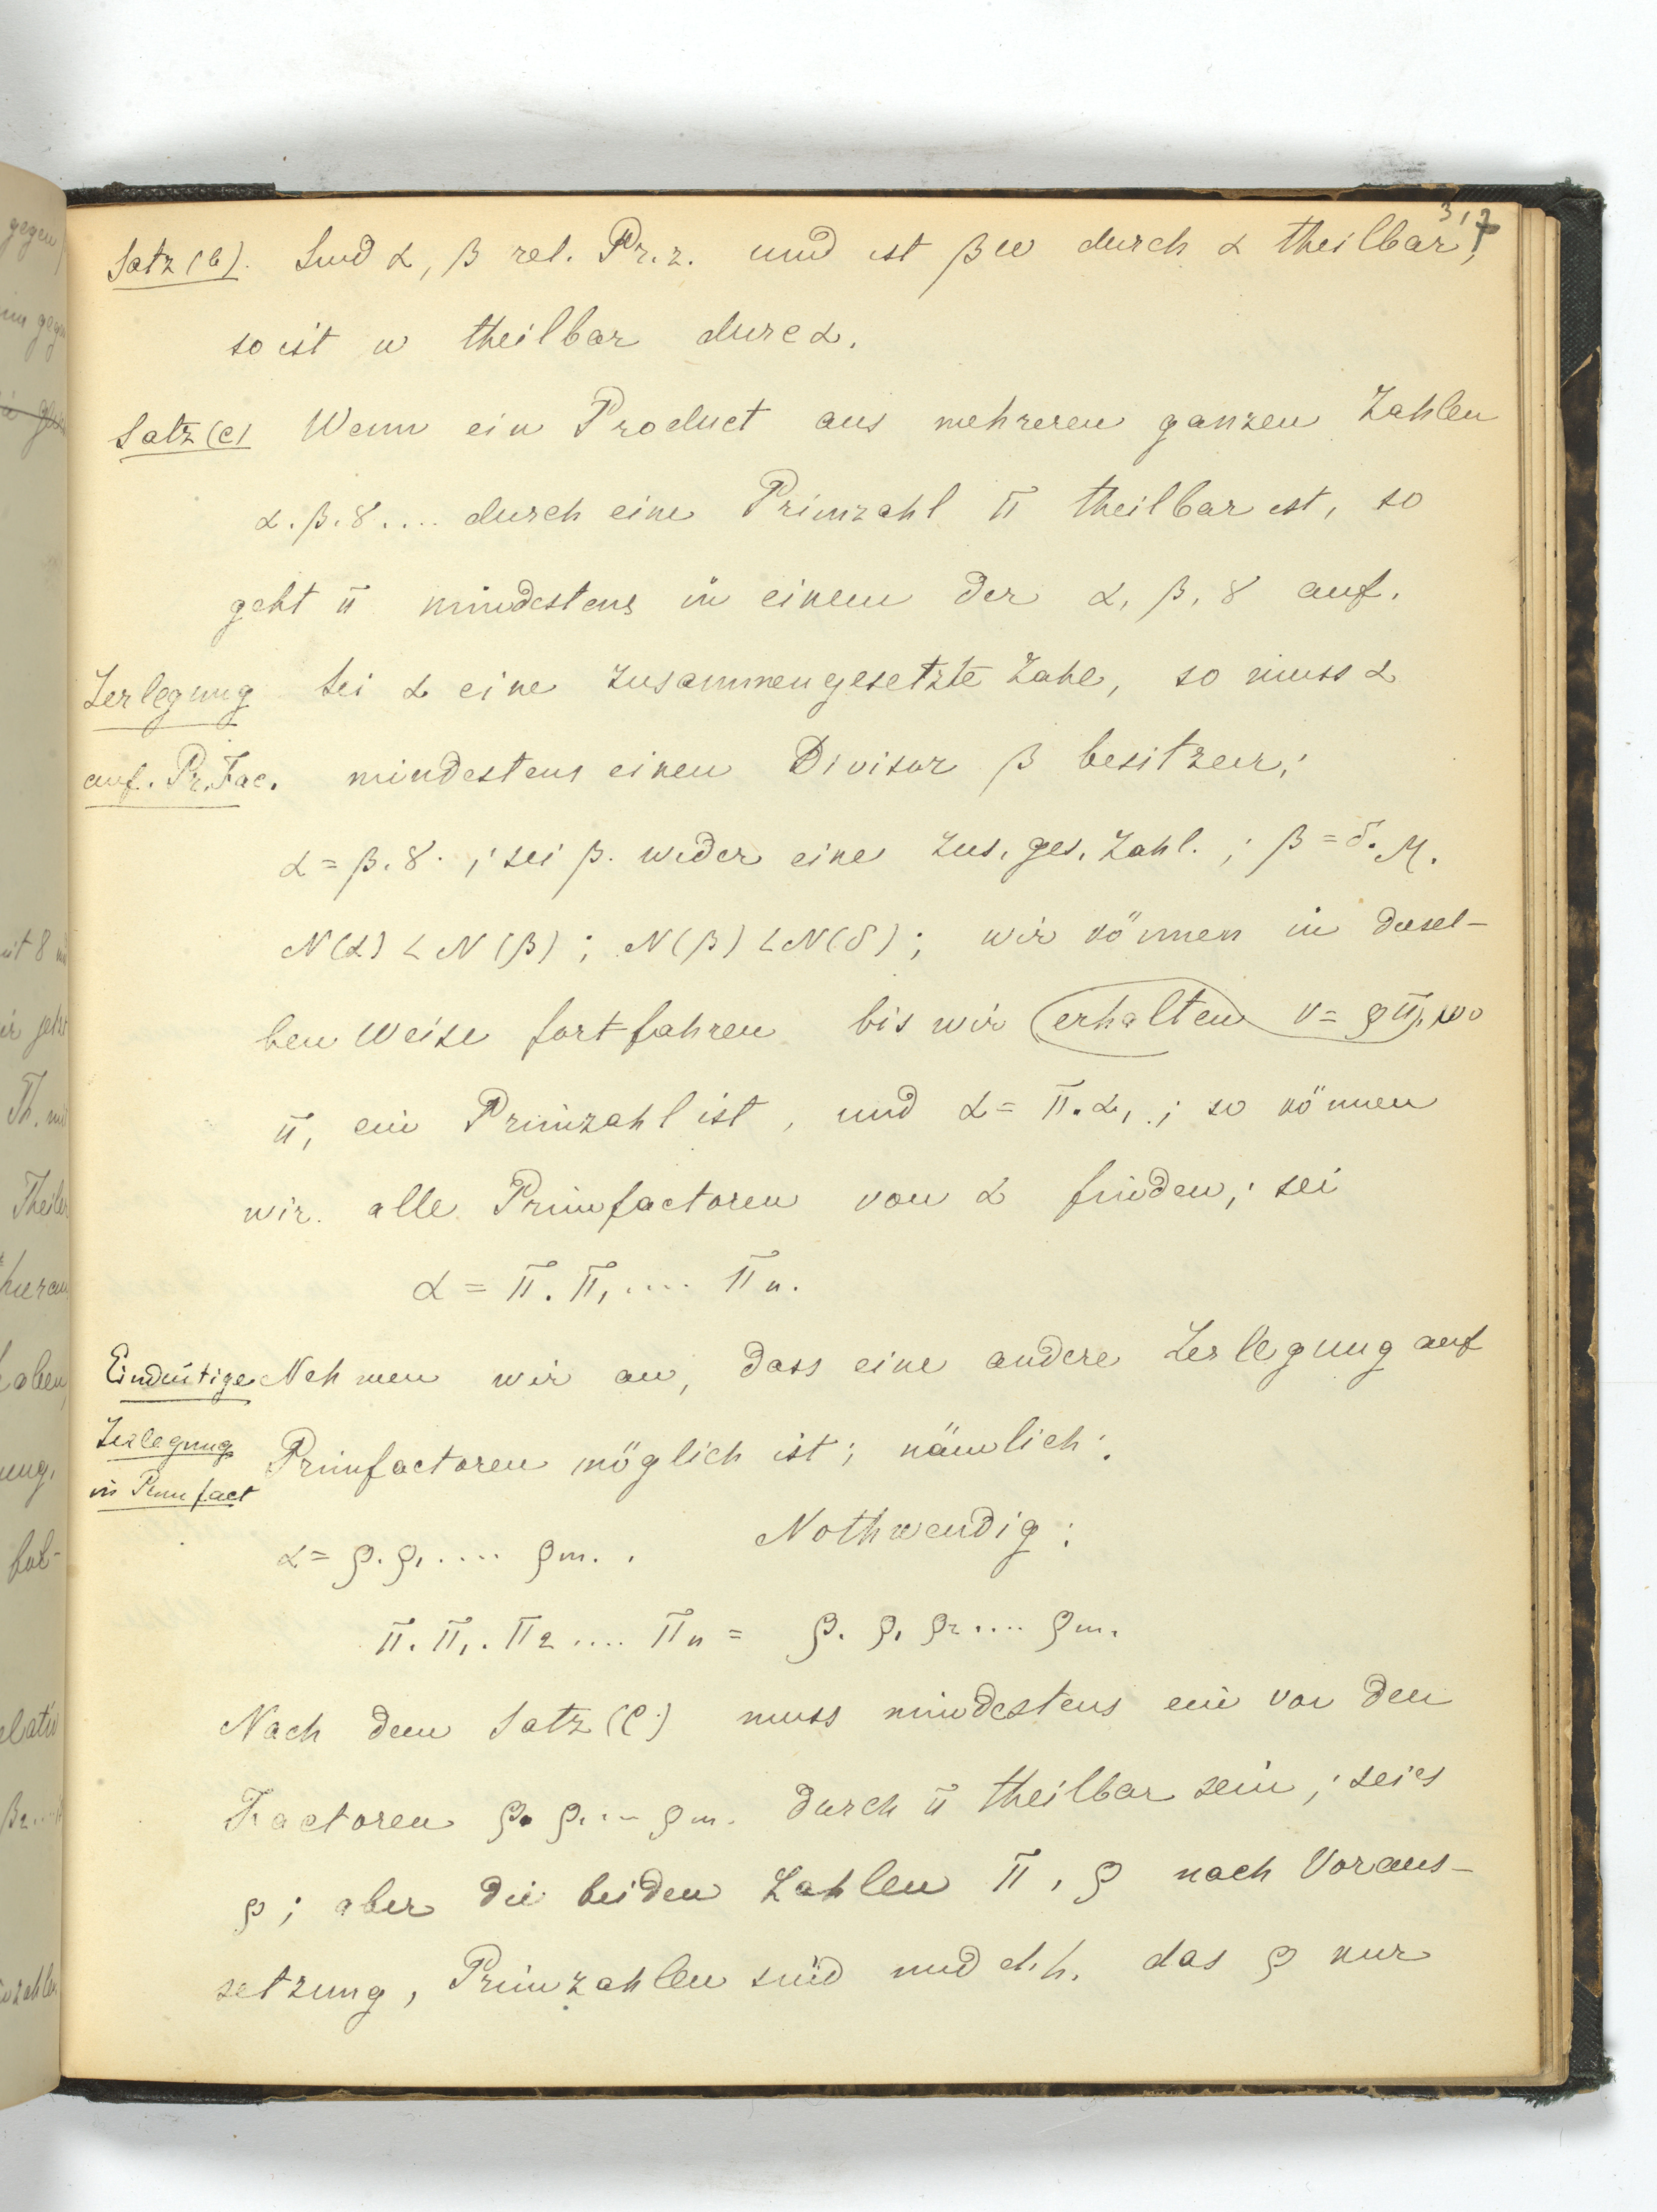 317
Satz (b). Sind α, β rel. Pr. z. und ist βω durch α theilbar,
so ist ω theilbar durc α.
Satz (c) Wenn ein Product aus mehreren ganzen Zahlen
α. β. γ .... durch eine Primzahl π theilbar ist, so
geht π mindestens in einem der α, β, γ auf.
Zerlegung Sei α eine zusammengesetzte Zahl, so muss α
auf. Pr. Fac. mindestens einen Divisor β besitzen;
α = β. γ. ; sei β. wider eine zus. ges. Zahl. ; β = δ. η.
N(α) < N(β) ; N(β) < N(δ) ; wir können in desel-
ben Weise fortfahren bis wir erhalten ν = ϱ π, wo
π, ein Primzahl ist, und α = π. α, ; so können
wir alle Primfactoren von α finden; sei
α = π. π, .... πn.
Eindeutige Nehmen wir an, dass eine andere Zerlegung auf
Zerlegung Primfactoren möglich ist; nämlich:
in Primfact
α = ϱ. ϱ, .... ϱm. . Nothwendig:
π. π,. π2 .... πn = ϱ. ϱ, ϱ2 .... ϱm.
Nach dem Satz (C) muss mindestens ein von den
Factoren ϱ. ϱ, ... ϱm. durch π theilbar sein; sei es
ϱ; aber die beiden Zahlen π, ϱ nach Voraus-
setzung, Primzahlen sind und d. h. das ϱ nur